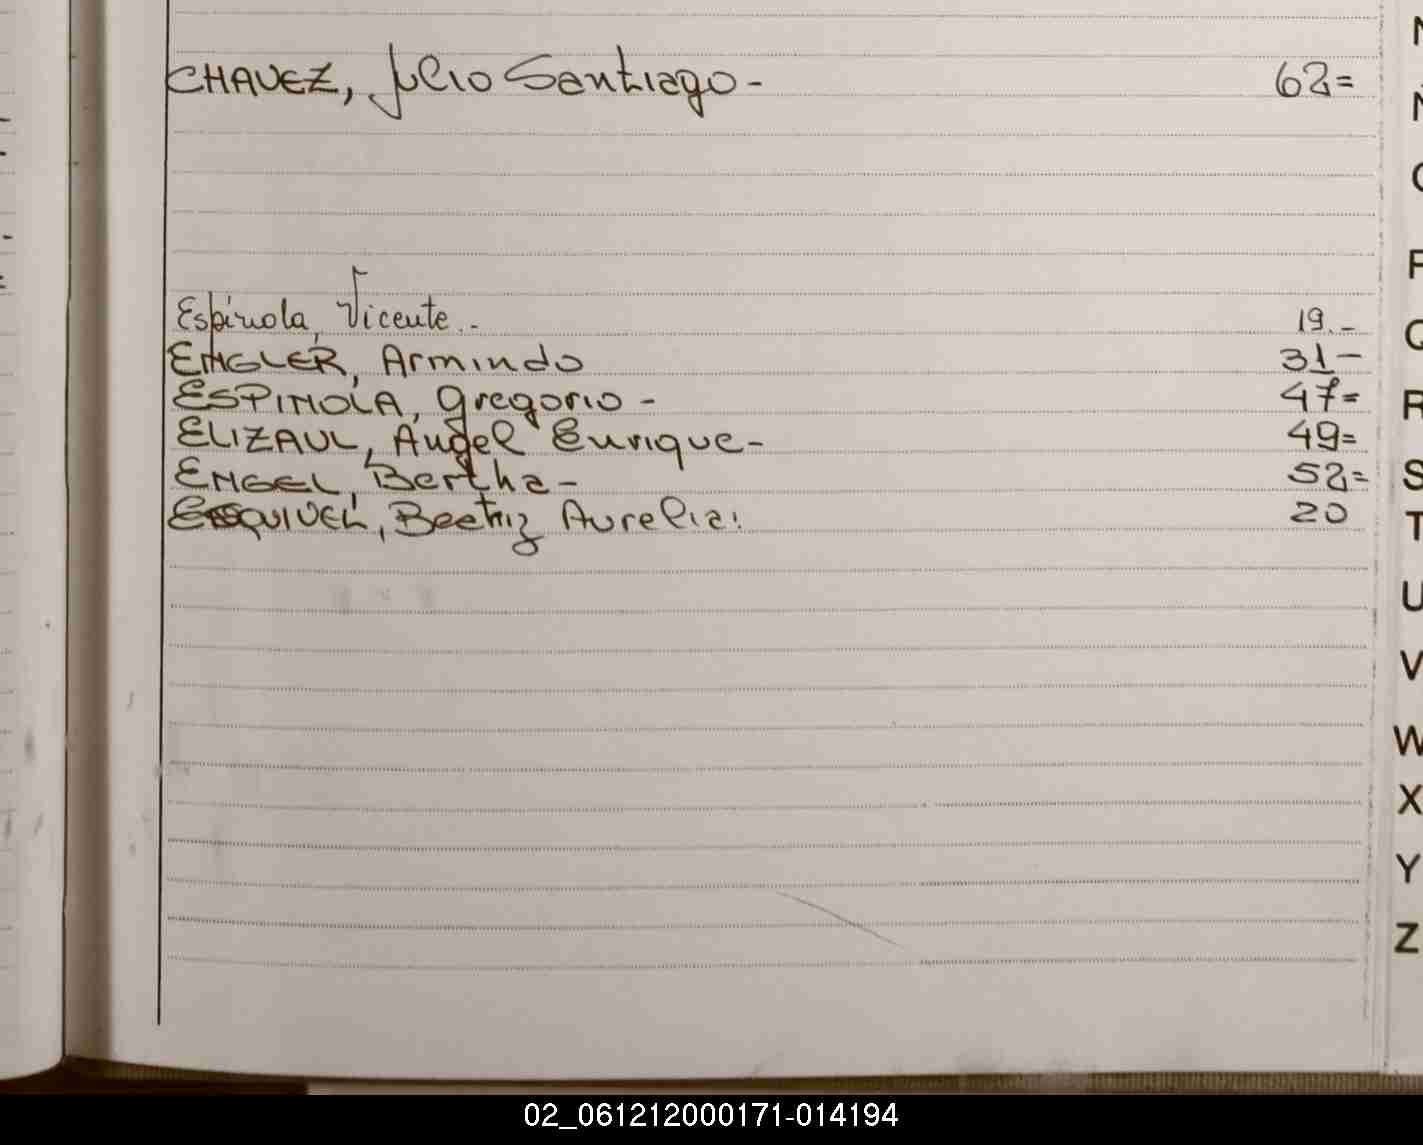 CHAVEZ, Julio Santiago - 62=
Espinola, Vicente.- 19.-
ENGLER, Armindo 31-
ESPINOLA, Gregorio - 47=
ELIZAUL, Angel Enrique- 49=
ENGEL, Bertha- 52=
ESQUIVEL, Beatriz Aurelia. 20
Q
R
S
T
U
V
W
X
Y
Z
02_061212000171-014194